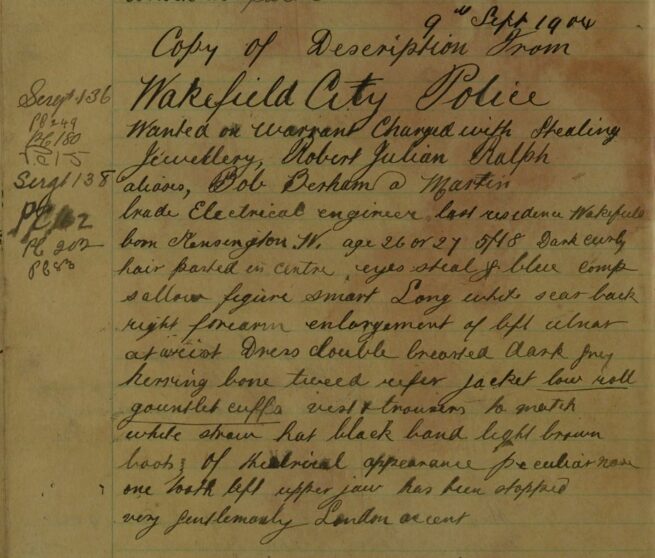 9th Sept 1904
Copy of Description From
Wakefield City Police
Wanted on warrant Charged with Stealing
Jewellery, Robert Julian Ralph
aliases, Bob Berham a Martin
trade Electrical engineer last residence Wakefield
born Kensington W. age 26 or 27 5/8 Dark curly
hair parted in centre eyes steal & blue comp
sallow figure smart Long white scar back
right forearm enlargement of left ulnar
at wrist Dress double breasted dark grey
herring bone tweed reefer jacket low roll
gauntlet cuffs vest & trousers to match
white straw hat black band light brown
boots, of theatrical appearance peculiar
one tooth left upper jaw has been stopped
very gentlemanly London accent
Sergt 136
PC 249
PC 180
Sergt 138
PC 62
PC 202
PC 83